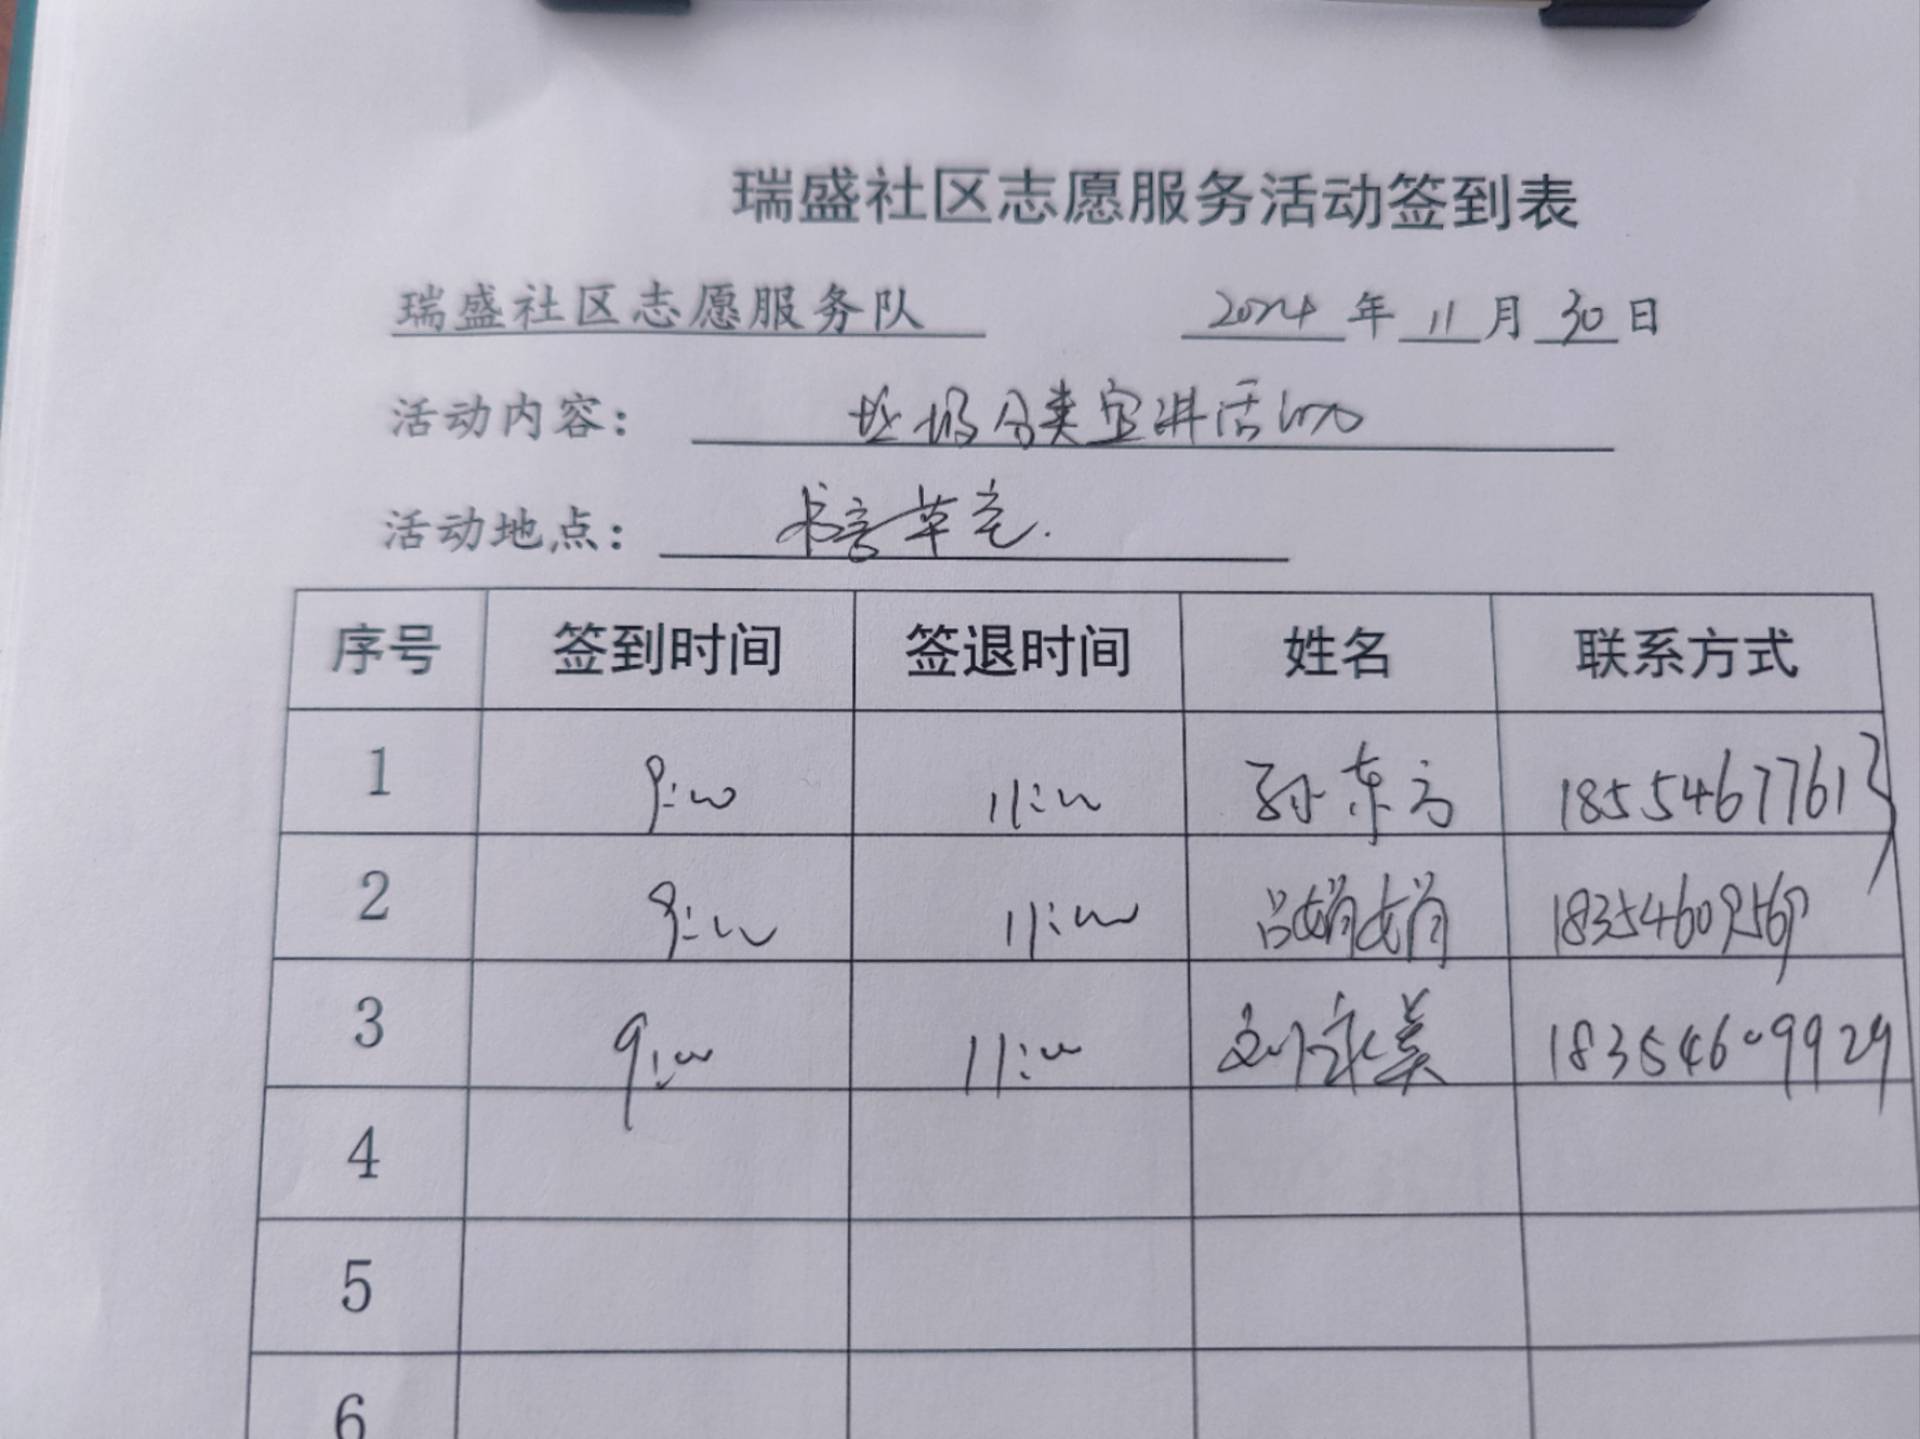 瑞盛社区志愿服务活动签到表
瑞盛社区志愿服务队 2024年11月30日
活动内容: 垃圾分类宣讲活动
活动地点:
序号 签到时间 签退时间 姓名 联系方式
1 9:00 11:00 孙东方 18554677613
2 9:00 11:00 吕娟娟 18354609569
3 9:00 11:00 刘永美 18354609929
4
5
6